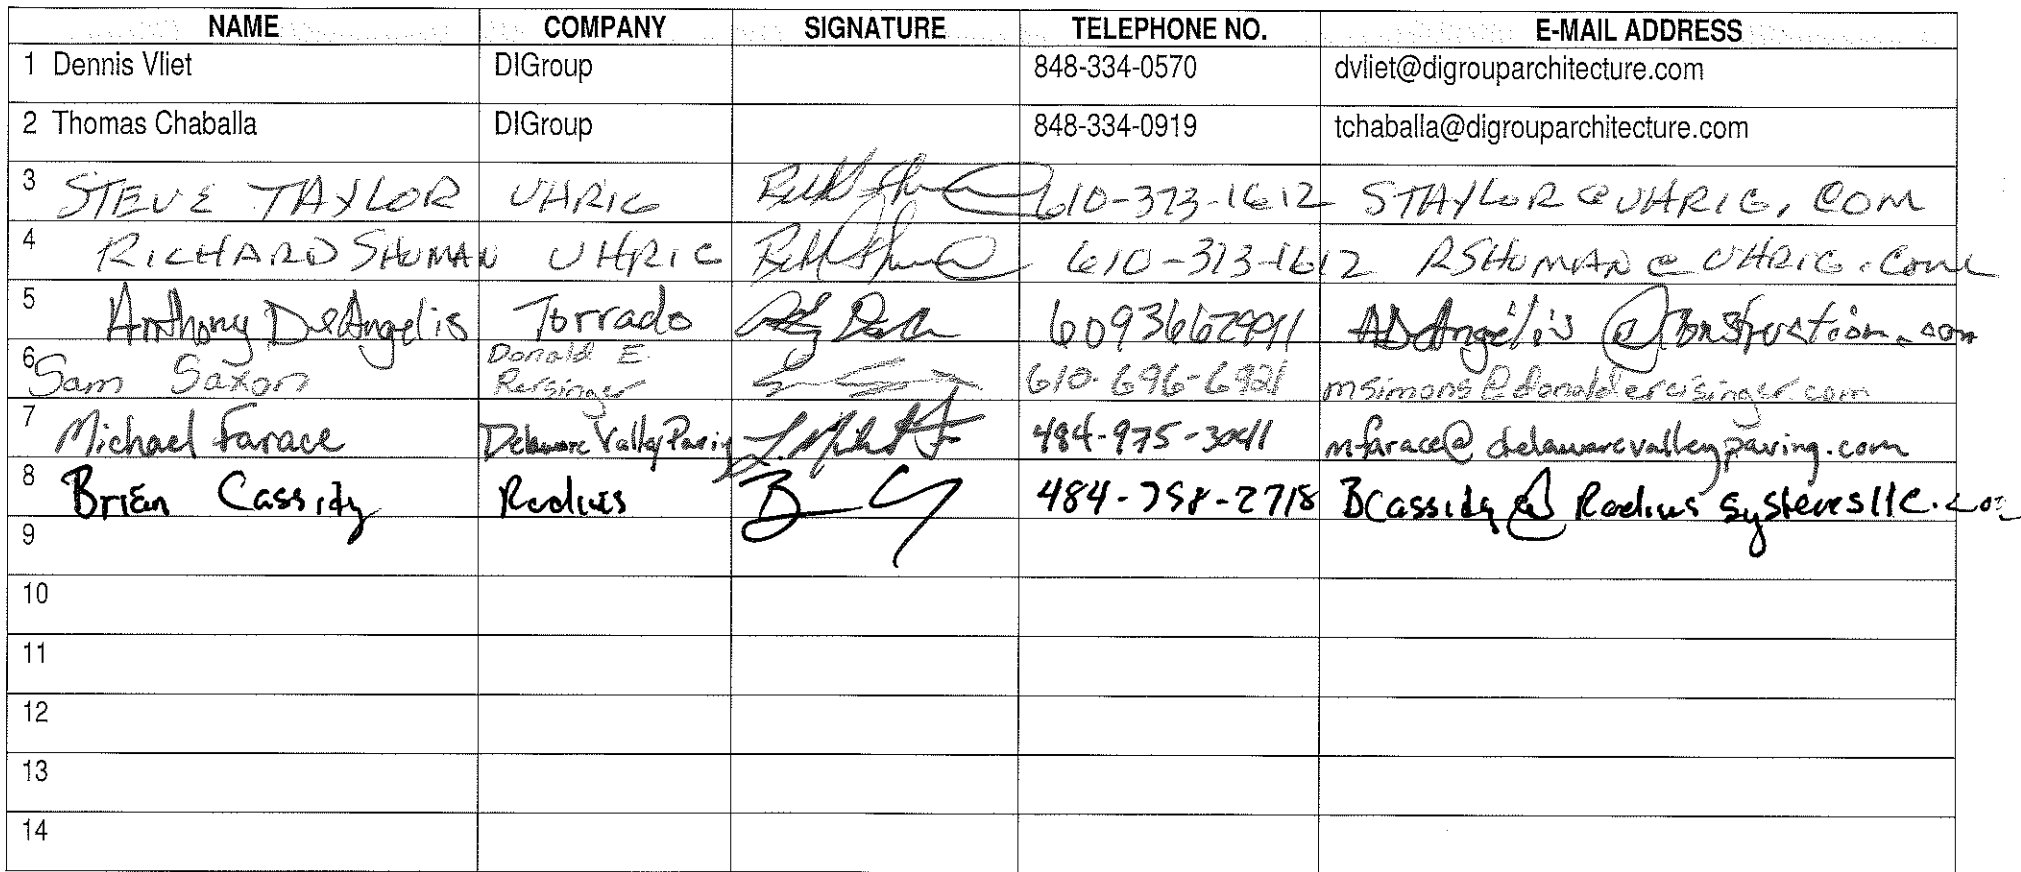 NAME COMPANY SIGNATURE TELEPHONE NO. E-MAIL ADDRESS
1 Dennis Vliet DIGroup 848-334-0570 dvliet@digrouparchitecture.com
2 Thomas Chaballa DIGroup 848-334-0919 tchaballa@digrouparchitecture.com
3 STEVE TAYLOR UHRIG 610-373-1612 STAYLOR@UHRIG.COM
4 RICHARD SHUMAN UHRIG 610-373-1612 RSHUMAN@UHRIG.COM
5 Anthony DeAngelis Torrado
6 Sam Saxon Donald E. Reisinger 610-696-6921 msimons@donaldereisinger.com
7 Michael Farace Delaware Valley Paving 484-975-3041 mfarace@delawarevalleypaving.com
8 Brian Cassidy Radius 484-758-2718 BCassidy@Radiussystemsllc.com
9
10
11
12
13
14